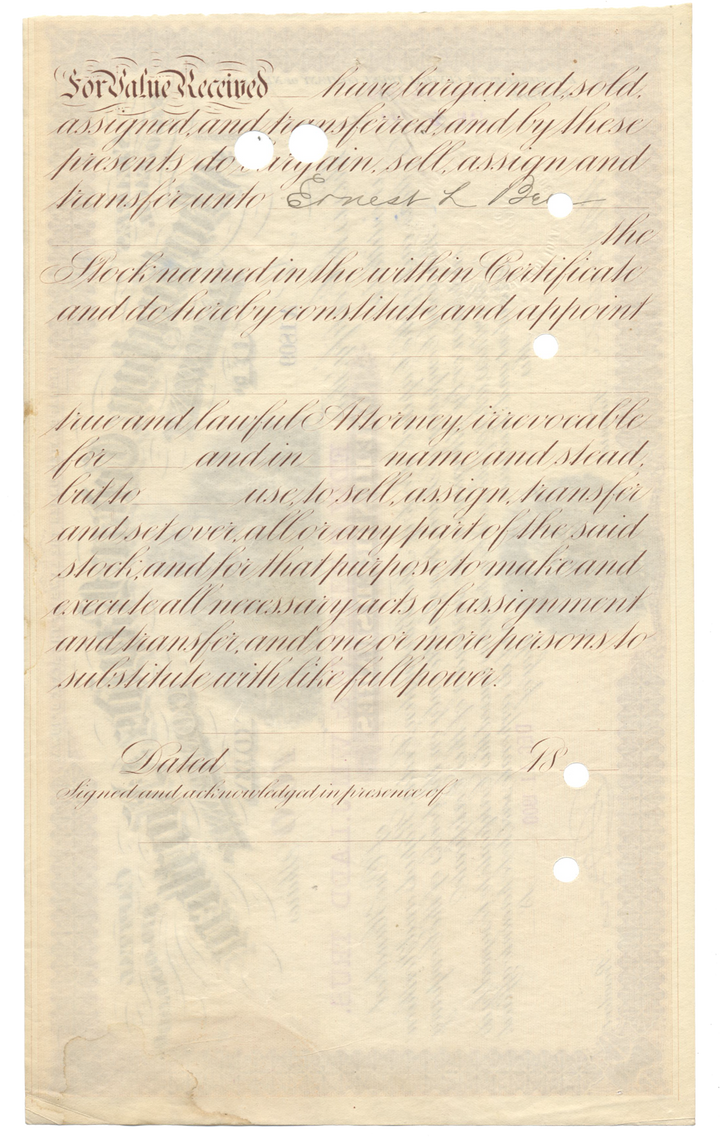 For Value Received have bargained, sold,
assigned, and transferred, and by these
presents do bargain, sell, assign and
transfer unto Ernest L
the
Stock named in the within Certificate
and do hereby constitute and appoint
true and lawful Attorney, irrevocable
for and in name and stead,
but to use, to sell, assign, transfer
and set over, all or any part of the said
stock, and for that purpose to make and
execute all necessary acts of assignment
and transfer, and one or more persons to
substitute with like full power.
Dated 18
Signed and acknowledged in presence of